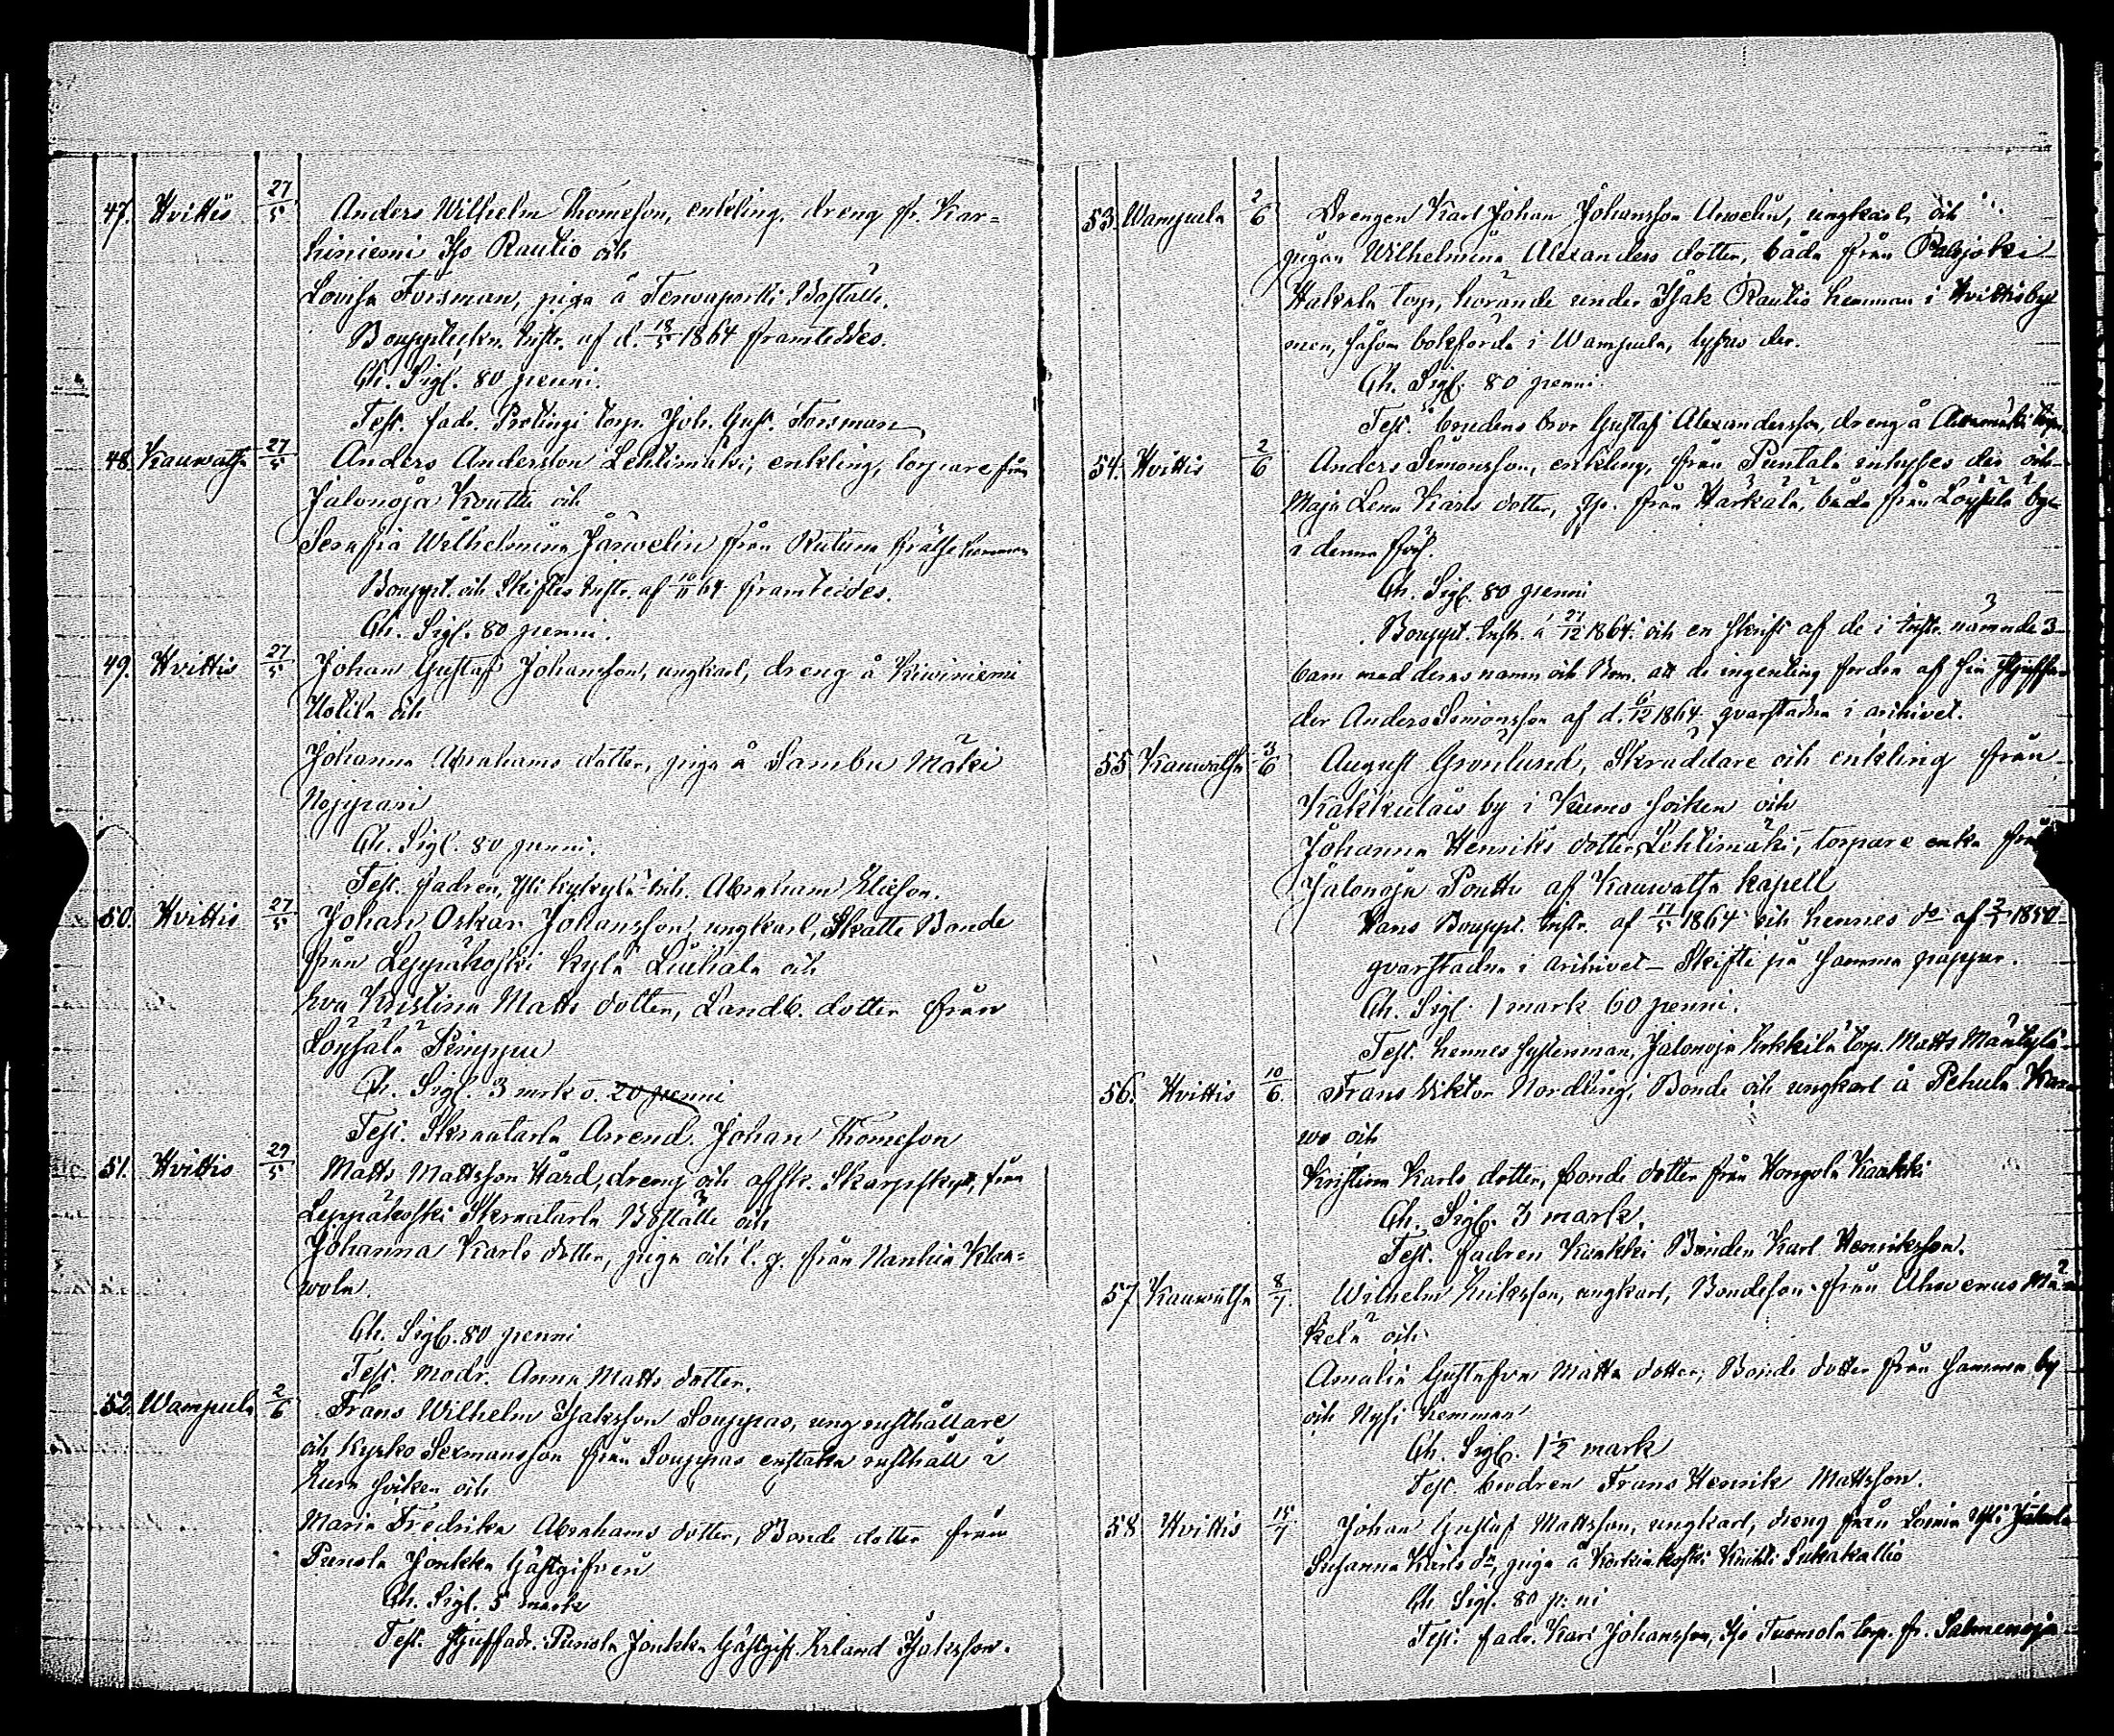 47. Hvittis 27/5 Anders Wilhelm Thomeson, enkling, dreng fr. Kar=
hiniemi Iso Rautio och
Lovisa Forsman, piga å Boställe.
Bouppteckn. instr. af d. 18/5 1864 framteddes.
Ch. Sigl. 80 penni.
Test. fadr. torp. Joh. Gust. Forsman
48 Kauwatsa 27/5 Anders Andersson Lehtimäki, enkling, torpare från
Jalonoja och
Serafia Wilhelmina Järwelin från Rutuna frälse hemman
Bouppt. och Skiftes instr. af 64 framteddes.
Ch. Sigl. 80 penni.
49. Hvittis 27/5 Johan Gustaf Johansson, ungkarl, dreng å Kiviniemi
Uotila och
Johanna Abrahams dotter, piga å Sambu Mäki
Nojpari
Ch. Sigl. 80 penni.
Test. fadren, Abraham Elieson.
50. Hvittis 27/5 Johan Oskar Johansson, ungkarl, Skatte Bonde
från Leppäkoski kylä Liuhala och
Eva Kristina Matts dotter, Landb. dotter från
Löysälä Pimppu
Ch. Sigl. 3 mrk o. 20 penni
Test. Arrend. Johan Thomeson
51. Hvittis 29/5 Matts Mattsson Hård, dreng och afsk. Skarpskyt, från
Leppäkoski Boställe och
Johanna Karls dotter, piga och l. q. från Nanhia Klaa=
vola.
Ch. Sigl. 80 penni
Test. modr. Anna Matts dotter.
52. Wampula 2/6 Frans Wilhelm Isaksson Souppas, ung rusthållare
och Kyrko Sexmansson från Souppas enstaka rusthåll i
Eura socken och
Maria Fredrika Abrahams dotter, Bonde dotter från
Punola Jonkka Gästgifveri
Ch. Sigl. 5 mark
Test. Stjuffadr. Punola Jonkka Gästgif. Erland Isaksson.
53. Wampula 2/6 Drengen Karl Johan Johansson Arvelin, ungkarl, och
pigan Wilhelmina Alexanders dotter, båda från Palojoki
Hakala torp, hörande under Isak Rautio hemman i Hvittisby
men, såsom bokförda i Wampula, lysas der.
Ch. Sigl. 80 penni.
Test. brudens bror Gustaf Alexandersson, dreng å torp.
54. Hvittis 2/6 Anders Simonsson, enkling, från Puntala inhyses der och
Maja Lena Karls dotter, från Härkälä, båda från Löysälä by
i denna förs.
Ch. Sigl. 80 penni
Bouppt. instr. å 27/12 1864 och en skrift af de i instr. nämnde 3
barn med deras namn och Bom. att de ingenting fordra af sin Stjuffa
der Anders Simonsson af d. 6/12 1864 qvarstadna i arkivet.
55 Kauwatsa 3/6 August Grönlund, Skräddare och enkling från
Kakkulais by i Kumo socken och
Johanna Henriks dotter, Lehtimäki, torpare enka från
Jalonoja Pouttu af Kauwatsa kapell
Hans Bouppt. instr. af 17/5 1864 och hennes do af 1850
qvarstadna i arkivet – Skifte på samma papper.
Ch. Sigl. 1 mark 60 penni.
Test. hennes systerman, Jalonoja Erkkilä torp. Matts Mäntylä
56. Hvittis 10/6 Frans Viktor Nordling, Bonde och ungkarl å Pehula
wo och
Kristina Karls dotter, bonde dotter från Hongola Kaakki
Ch. Sigl. 3 mark.
Test. fadren Kaakki Bonden Karl Henriksson.
57 Kauwatsa 8/7 Wilhelm Eriksson, ungkarl, Bondeson från Ahvenus Mä
kelä och
Amalia Gustafva Matts dotter, Bonde dotter från samma by
och Nysi hemman
Ch. Sigl. 1½ mark
Test. brodren Frans Henrik Mattsson.
58 Hvittis 15/7 Johan Gustaf Mattsson, ungkarl, dreng från Loima
Susanna Karls dr, piga å Korkiakoski Knihti Sukakallio
Ch. Sigl. 80 p:ni
Test. fadr. Karl Johansson, Iso Tuomola torp. fr. Salmenoja